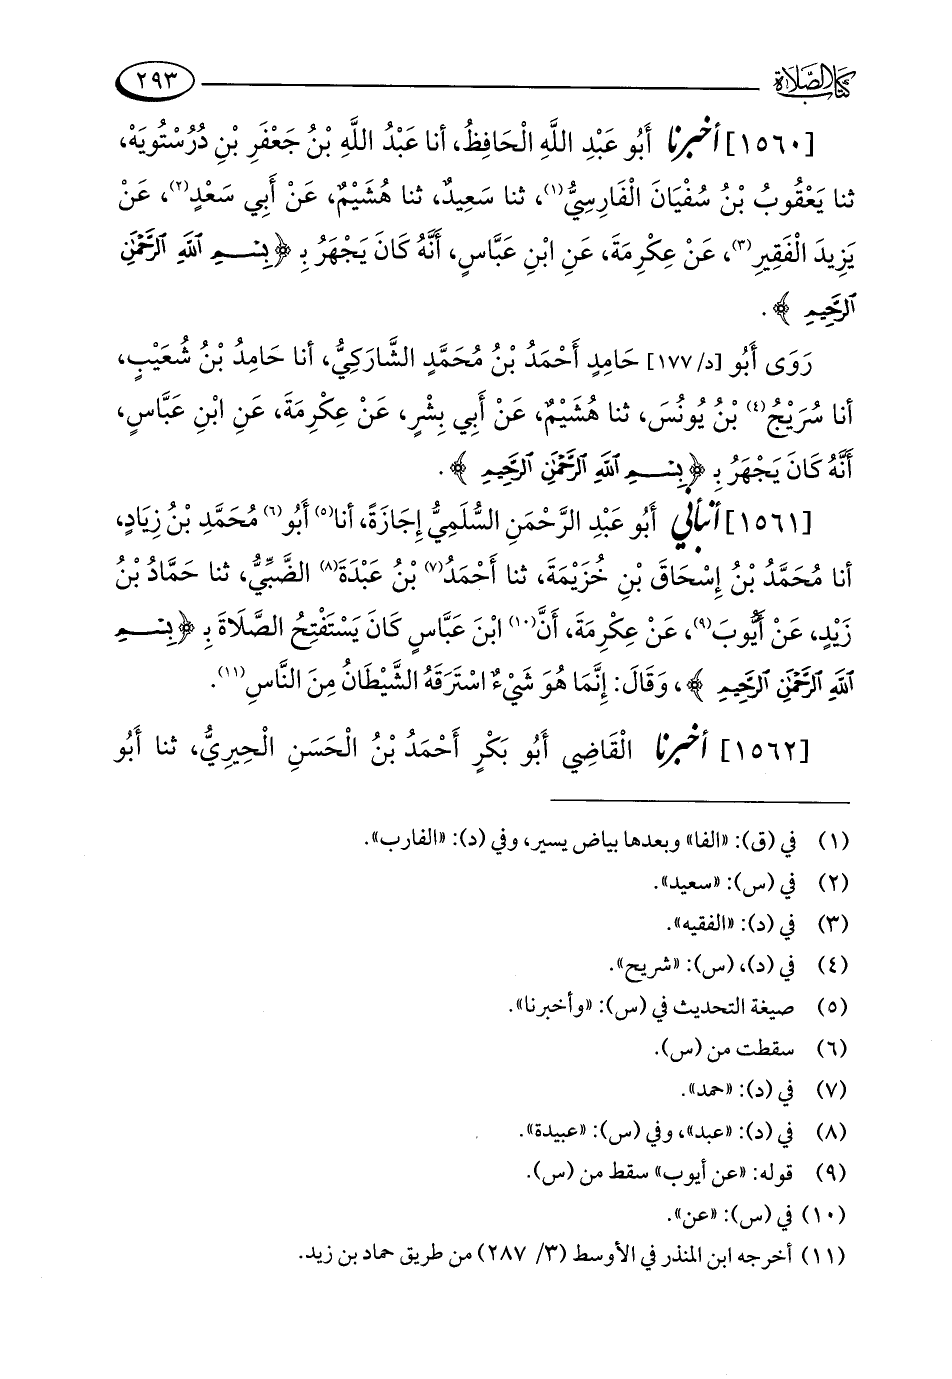 كتاب الصلاة ٢٩٣
[١٥٦٠] أخبرنا أَبُو عَبْدِ اللَّهِ الْحَافِظُ، أنا عَبْدُ اللَّهِ بْنُ جَعْفَرِ بْنِ دُرُسْتُويَهْ،
ثنا يَعْقُوبُ بْنُ سُفْيَانَ الْفَارِسِيُّ(١)، ثنا سَعِيدٌ، ثنا هُشَيْمٌ، عَنْ أَبِي سَعْدٍ(٢)، عَنْ
يَزِيدَ الْفَقِيرِ(٣)، عَنْ عِكْرِمَةَ، عَنِ ابْنِ عَبَّاسٍ، أَنَّهُ كَانَ يَجْهَرُ بِـ ﴿بِسْمِ ٱللَّهِ ٱلرَّحْمَٰنِ
ٱلرَّحِيمِ﴾.
رَوَى أَبُو [د/ ١٧٧] حَامِدٍ أَحْمَدُ بْنُ مُحَمَّدٍ الشَّارَكِيُّ، أنا حَامِدُ بْنُ شُعَيْبٍ،
أنا سُرَيْجُ(٤) بْنُ يُونُسَ، ثنا هُشَيْمٌ، عَنْ أَبِي بِشْرٍ، عَنْ عِكْرِمَةَ، عَنِ ابْنِ عَبَّاسٍ،
أَنَّهُ كَانَ يَجْهَرُ بِـ ﴿بِسْمِ ٱللَّهِ ٱلرَّحْمَٰنِ ٱلرَّحِيمِ﴾.
[١٥٦١] أنبأني أَبُو عَبْدِ الرَّحْمَنِ السُّلَمِيُّ إِجَازَةً، أنا(٥) أَبُو(٦) مُحَمَّدِ بْنُ زِيَادٍ،
أنا مُحَمَّدُ بْنُ إِسْحَاقَ بْنِ خُزَيْمَةَ، ثنا أَحْمَدُ(٧) بْنُ عَبْدَةَ(٨) الضَّبِّيُّ، ثنا حَمَّادُ بْنُ
زَيْدٍ، عَنْ أَيُّوبَ(٩)، عَنْ عِكْرِمَةَ، أَنَّ(١٠) ابْنَ عَبَّاسٍ كَانَ يَسْتَفْتِحُ الصَّلَاةَ بِـ ﴿بِسْمِ
ٱللَّهِ ٱلرَّحْمَٰنِ ٱلرَّحِيمِ﴾، وَقَالَ: إِنَّمَا هُوَ شَيْءٌ اسْتَرَقَهُ الشَّيْطَانُ مِنَ النَّاسِ(١١).
[١٥٦٢] أخبرنا الْقَاضِي أَبُو بَكْرٍ أَحْمَدُ بْنُ الْحَسَنِ الْحِيرِيُّ، ثنا أَبُو
(١) في (ق): «الفا» وبعدها بياض يسير، وفي (د): «الفارب».
(٢) في (س): «سعيد».
(٣) في (د): «الفقيه».
(٤) في (د)، (س): «شريح».
(٥) صيغة التحديث في (س): «وأخبرنا».
(٦) سقطت من (س).
(٧) في (د): «حمد».
(٨) في (د): «عبد»، وفي (س): «عبيدة».
(٩) قوله: «عن أيوب» سقط من (س).
(١٠) في (س): «عن».
(١١) أخرجه ابن المنذر في الأوسط (٣/ ٢٨٧) من طريق حماد بن زيد.